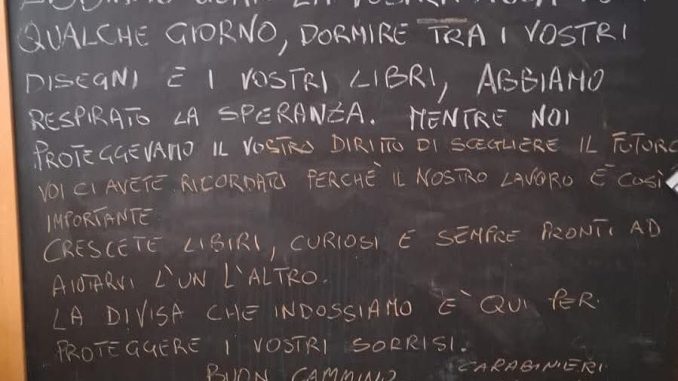 LA VOSTRA
QUALCHE GIORNO, DORMIRE TRA I VOSTRI
DISEGNI E I VOSTRI LIBRI, ABBIAMO
RESPIRATO LA SPERANZA. MENTRE NOI
PROTEGGEVAMO IL VOSTRO DIRITTO DI SCEGLIERE IL FUTURO
VOI CI AVETE RICORDATO PERCHÈ IL NOSTRO LAVORO È COSÌ
IMPORTANTE
CRESCETE LIBIRI, CURIOSI E SEMPRE PRONTI AD
AIUTARVI L'UN L'ALTRO.
LA DIVISA CHE INDOSSIAMO È QUI PER
PROTEGGERE I VOSTRI SORRISI.
BUON CAMMINO CARABINIERI